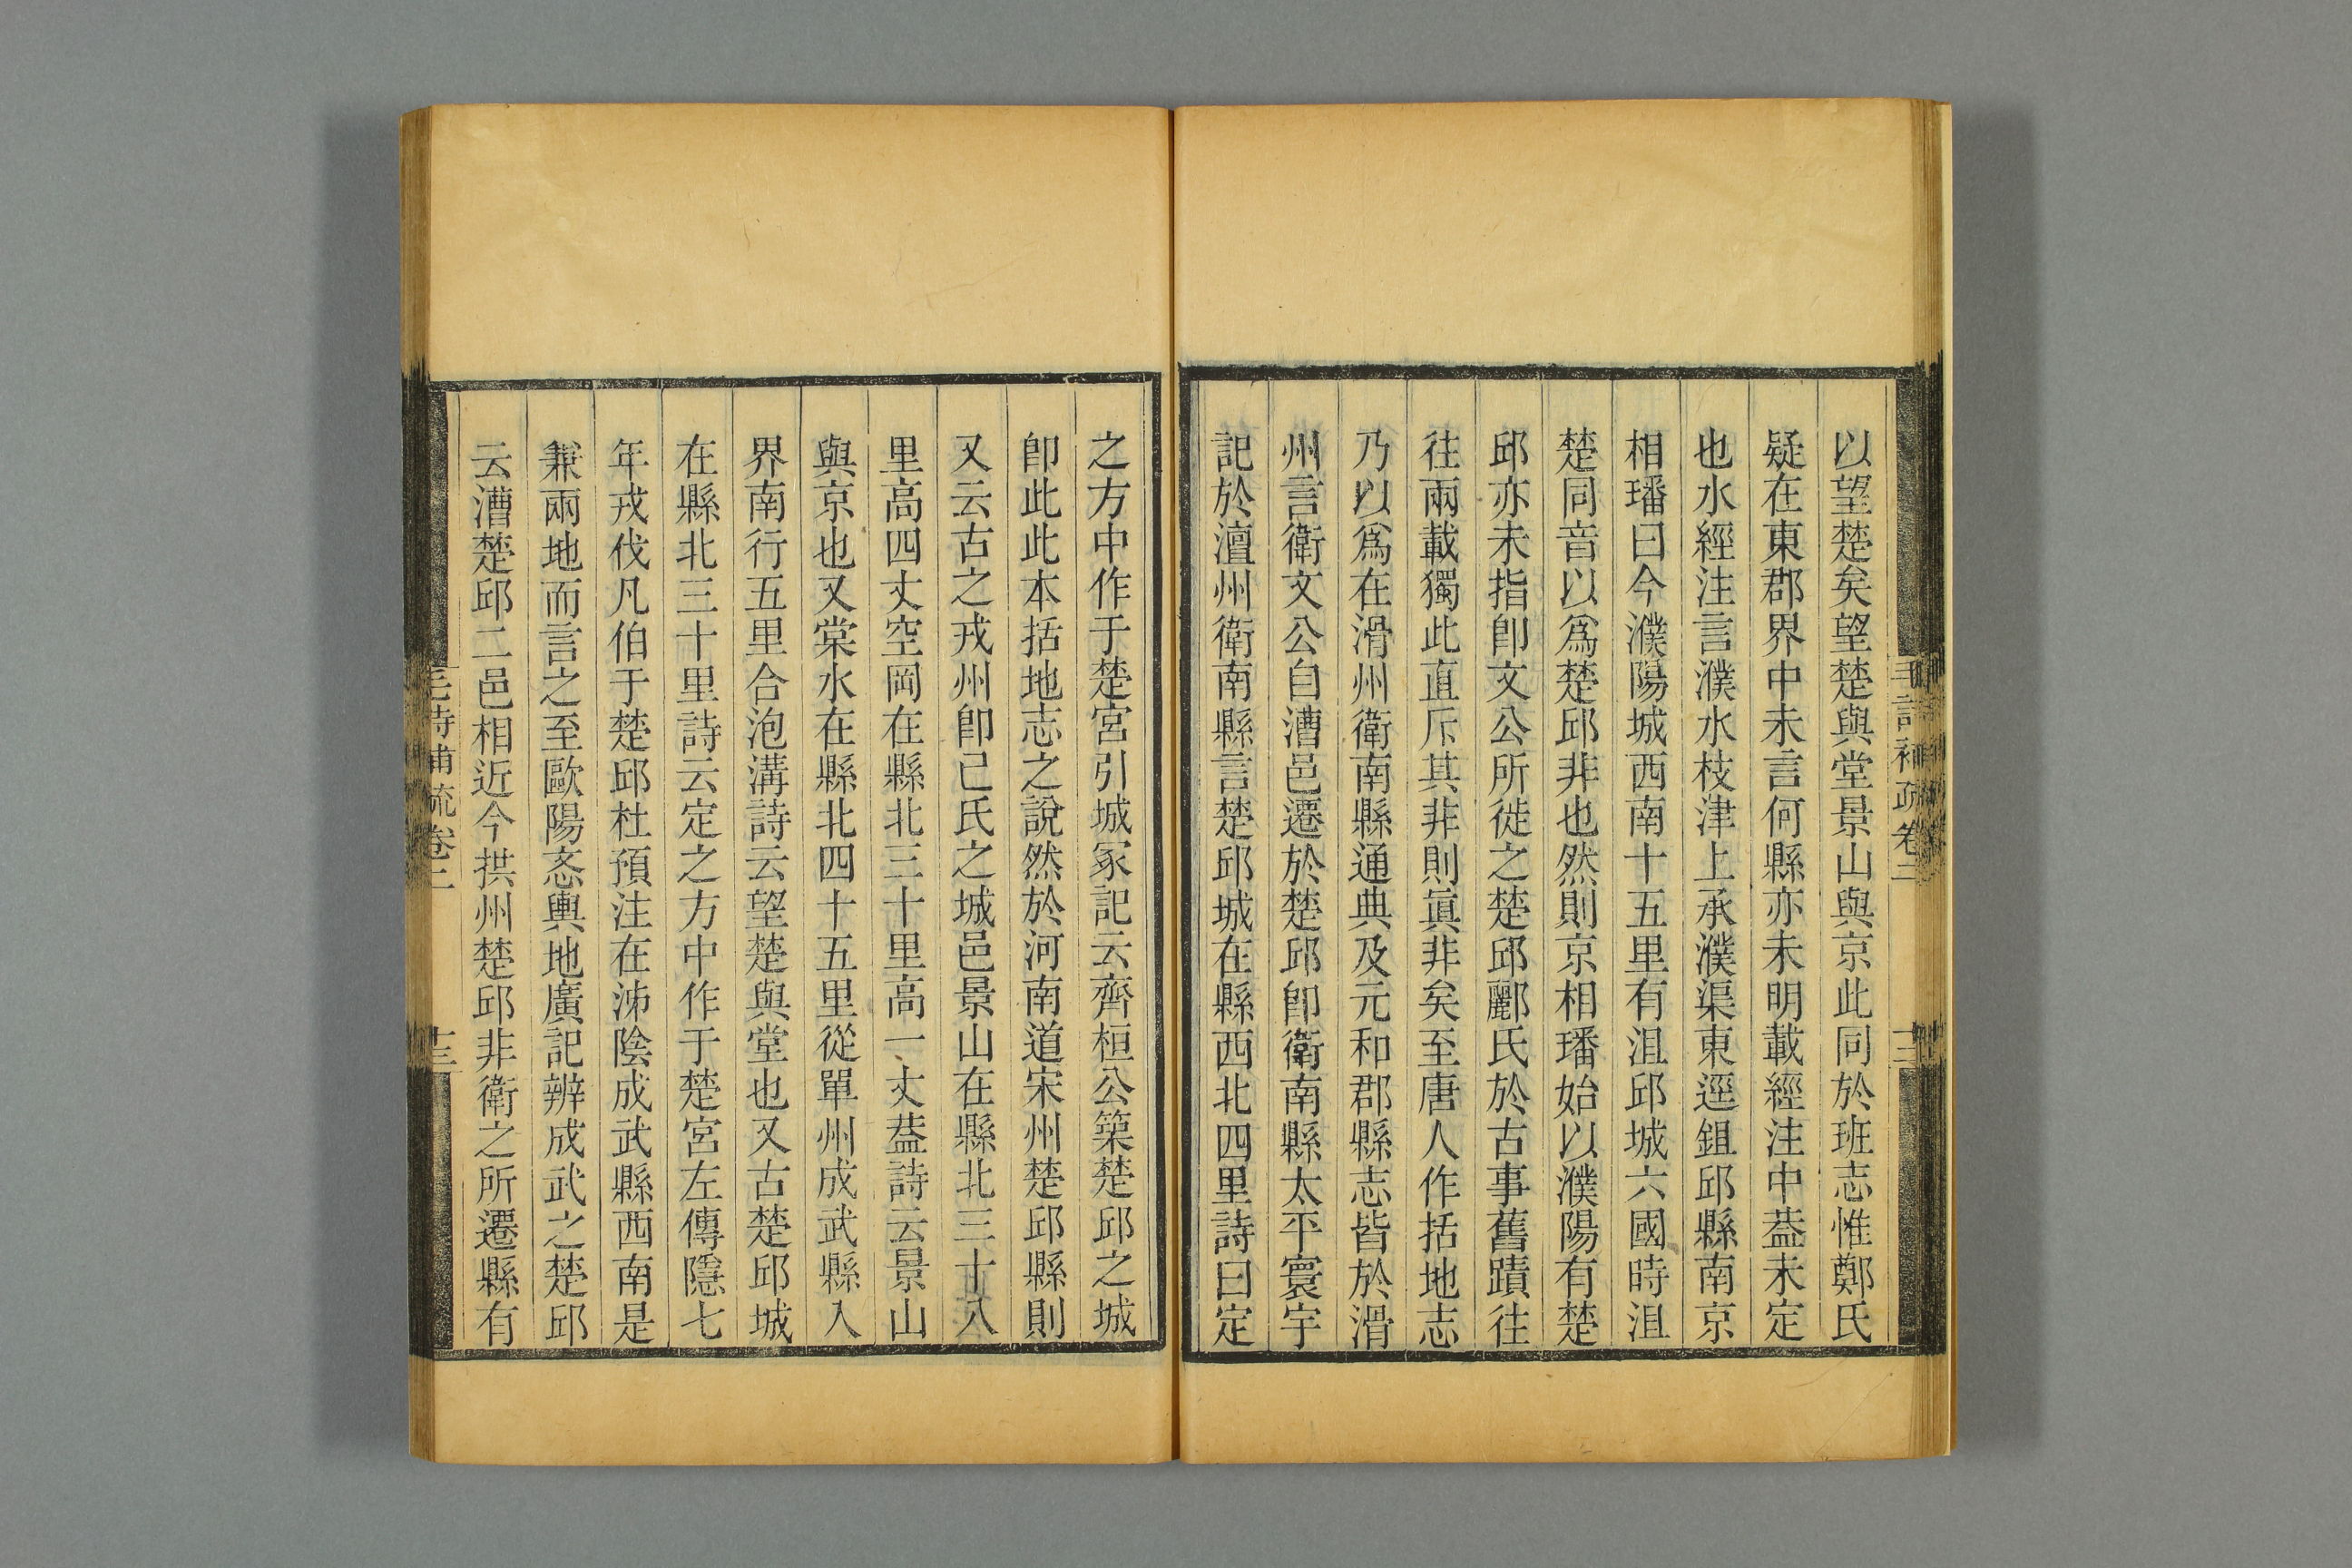 以望楚矣望楚與堂景山與京此同於班志惟鄭氏
疑在東郡界中未言何縣亦未明載經注中葢未定
也水經注言濮水枝津上承濮渠東逕鉏邱縣南京
相璠曰今濮陽城西南十五里有沮邱城六國時沮
楚同音以爲楚邱非也然則京相璠始以濮陽有楚
邱亦未指卽文公所徙之楚邱酈氏於古事舊蹟往
往兩載獨此直斥其非則眞非矣至唐人作括地志
乃以爲在滑州衛南縣通典及元和郡縣志皆於滑
州言衛文公自漕邑遷於楚邱卽衛南縣太平寰宇
記於澶州衛南縣言楚邱城在縣西北四里詩曰定
之方中作于楚宮引城冢記云齊桓公築楚邱之城
卽此此本括地志之說然於河南道宋州楚邱縣則
又云古之戎州卽己氏之城邑景山在縣北三十八
里高四丈空岡在縣北三十里高一丈葢詩云景山
與京也又棠水在縣北四十五里從單州成武縣入
界南行五里合泡溝詩云望楚與堂也又古楚邱城
在縣北三十里詩云定之方中作于楚宮左傳隱七
年戎伐凡伯于楚邱杜預注在泲陰成武縣西南是
兼兩地而言之至歐陽忞輿地廣記辨成武之楚邱
云漕楚邱二邑相近今拱州楚邱非衛之所遷縣有
毛詩補疏卷二
十三